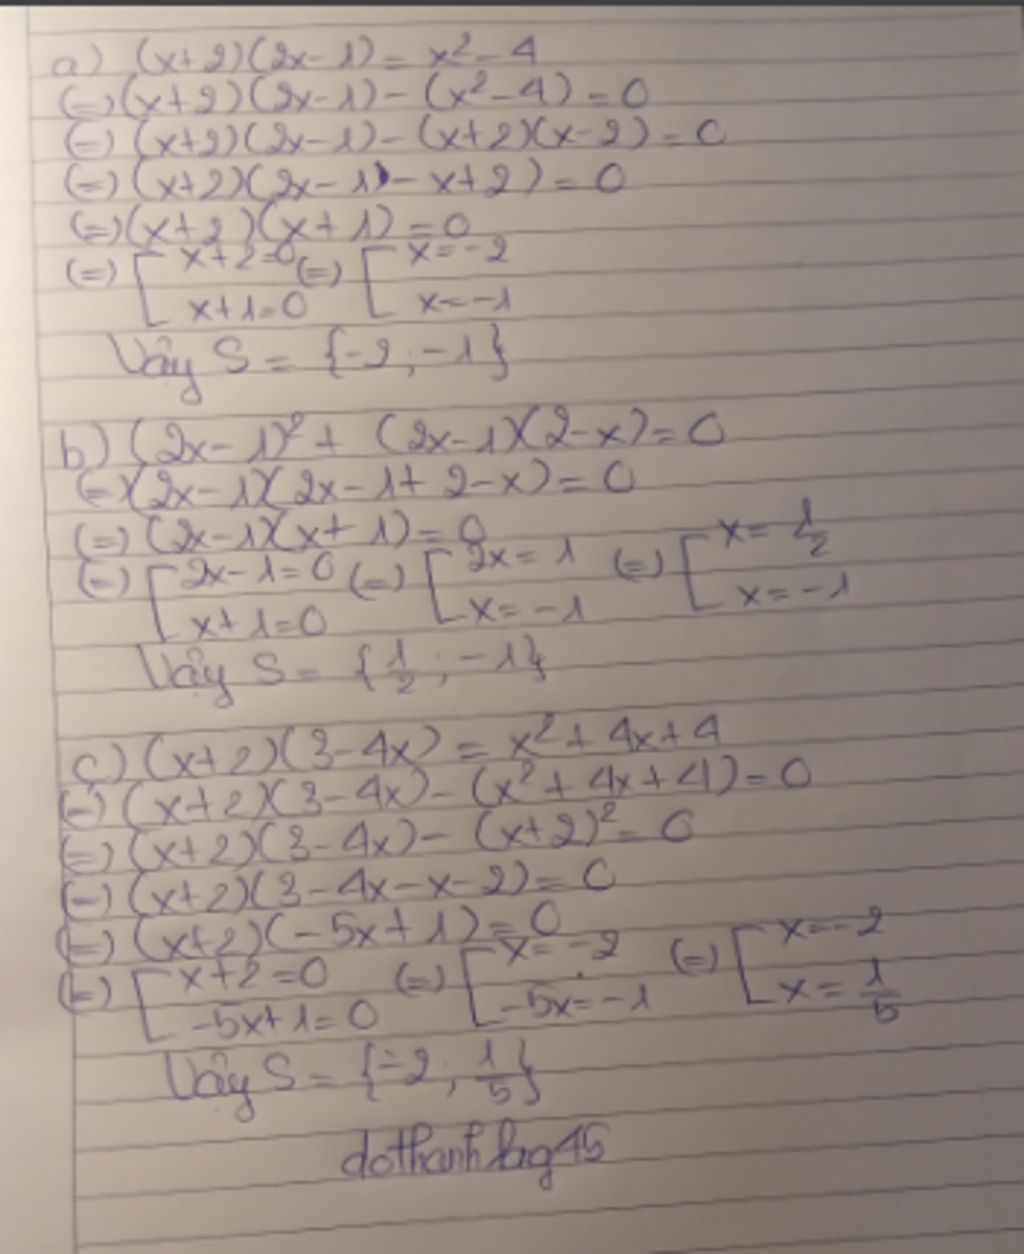 a) (x+2)(2x-1) = x² - 4
(=) (x+2)(2x-1) - (x²-4) = 0
(=) (x+2)(2x-1) - (x+2)(x-2) = 0
(=) (x+2)(2x-1-x+2) = 0
(=) (x+2)(x+1) = 0
(=) [ x+2=0 (=) [ x=-2
x+1=0 x=-1
Vậy S = {-2; -1}
b) (2x-1)² + (2x-1)(2-x) = 0
(=) (2x-1)(2x-1+2-x) = 0
(=) (2x-1)(x+1) = 0
(=) [ 2x-1=0 (=) [ 2x=1 (=) [ x=1/2
x+1=0 x=-1 x=-1
Vậy S = {1/2; -1}
c) (x+2)(3-4x) = x²+4x+4
(=) (x+2)(3-4x) - (x²+4x+4) = 0
(=) (x+2)(3-4x) - (x+2)² = 0
(=) (x+2)(3-4x-x-2) = 0
(=) (x+2)(-5x+1) = 0
(=) [ x+2=0 (=) [ x=-2 (=) [ x=-2
-5x+1=0 -5x=-1 x=1/5
Vậy S = {-2; 1/5}